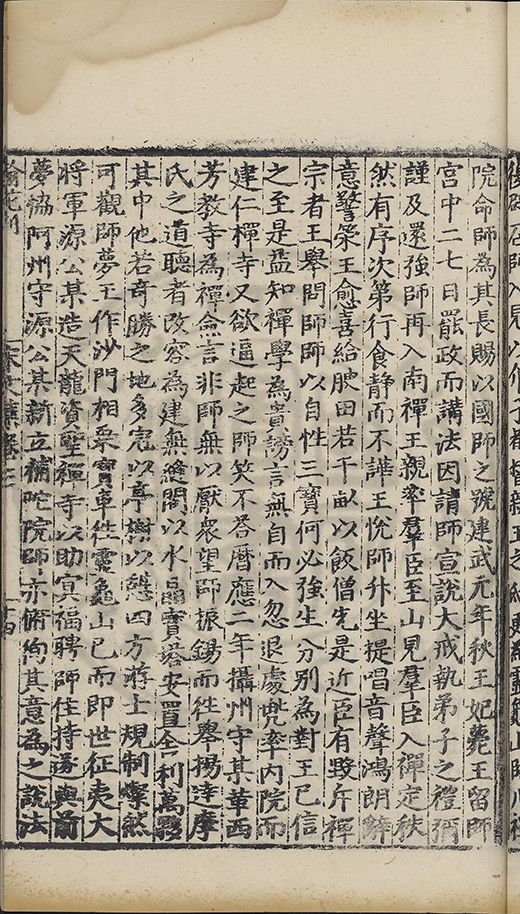 院命師為其長賜以國師之號建武元年秋王妃薨王留師
宮中二七日罷政而講法因請師宣說大戒執弟子之禮彌
謹及還強師再入南禪王親率羣臣至山見羣臣入禪定秩
然有序次第行食靜而不譁王悅師升坐提唱音聲鴻朗辭
意警策王愈喜給腴田若干畝以飯僧先是近臣有毀斥禪
宗者王舉問師師以自性三寶何必強生分別為對王已信
之至是益知禪學為貴謗言無自而入忽退處兜率內院而
建仁禪寺又欲逼起之師笑不荅曆應二年攝州守某革西
芳教寺為禪僉言非師無以厭衆望師振錫而徃舉揚達摩
氏之道聽者改容為建無縫閣以水晶寶塔安置舍利萬顆
其中他若奇勝之地多冠以亭榭以憩四方游士規制燦然
可觀師夢王作沙門相乗寶車徃靈龜山已而即世征夷大
將軍源公某造天龍資聖禪寺以助冥福聘師住持遂與前
夢恊阿州守源公某新立補陀院師亦俯徇其意為之說法